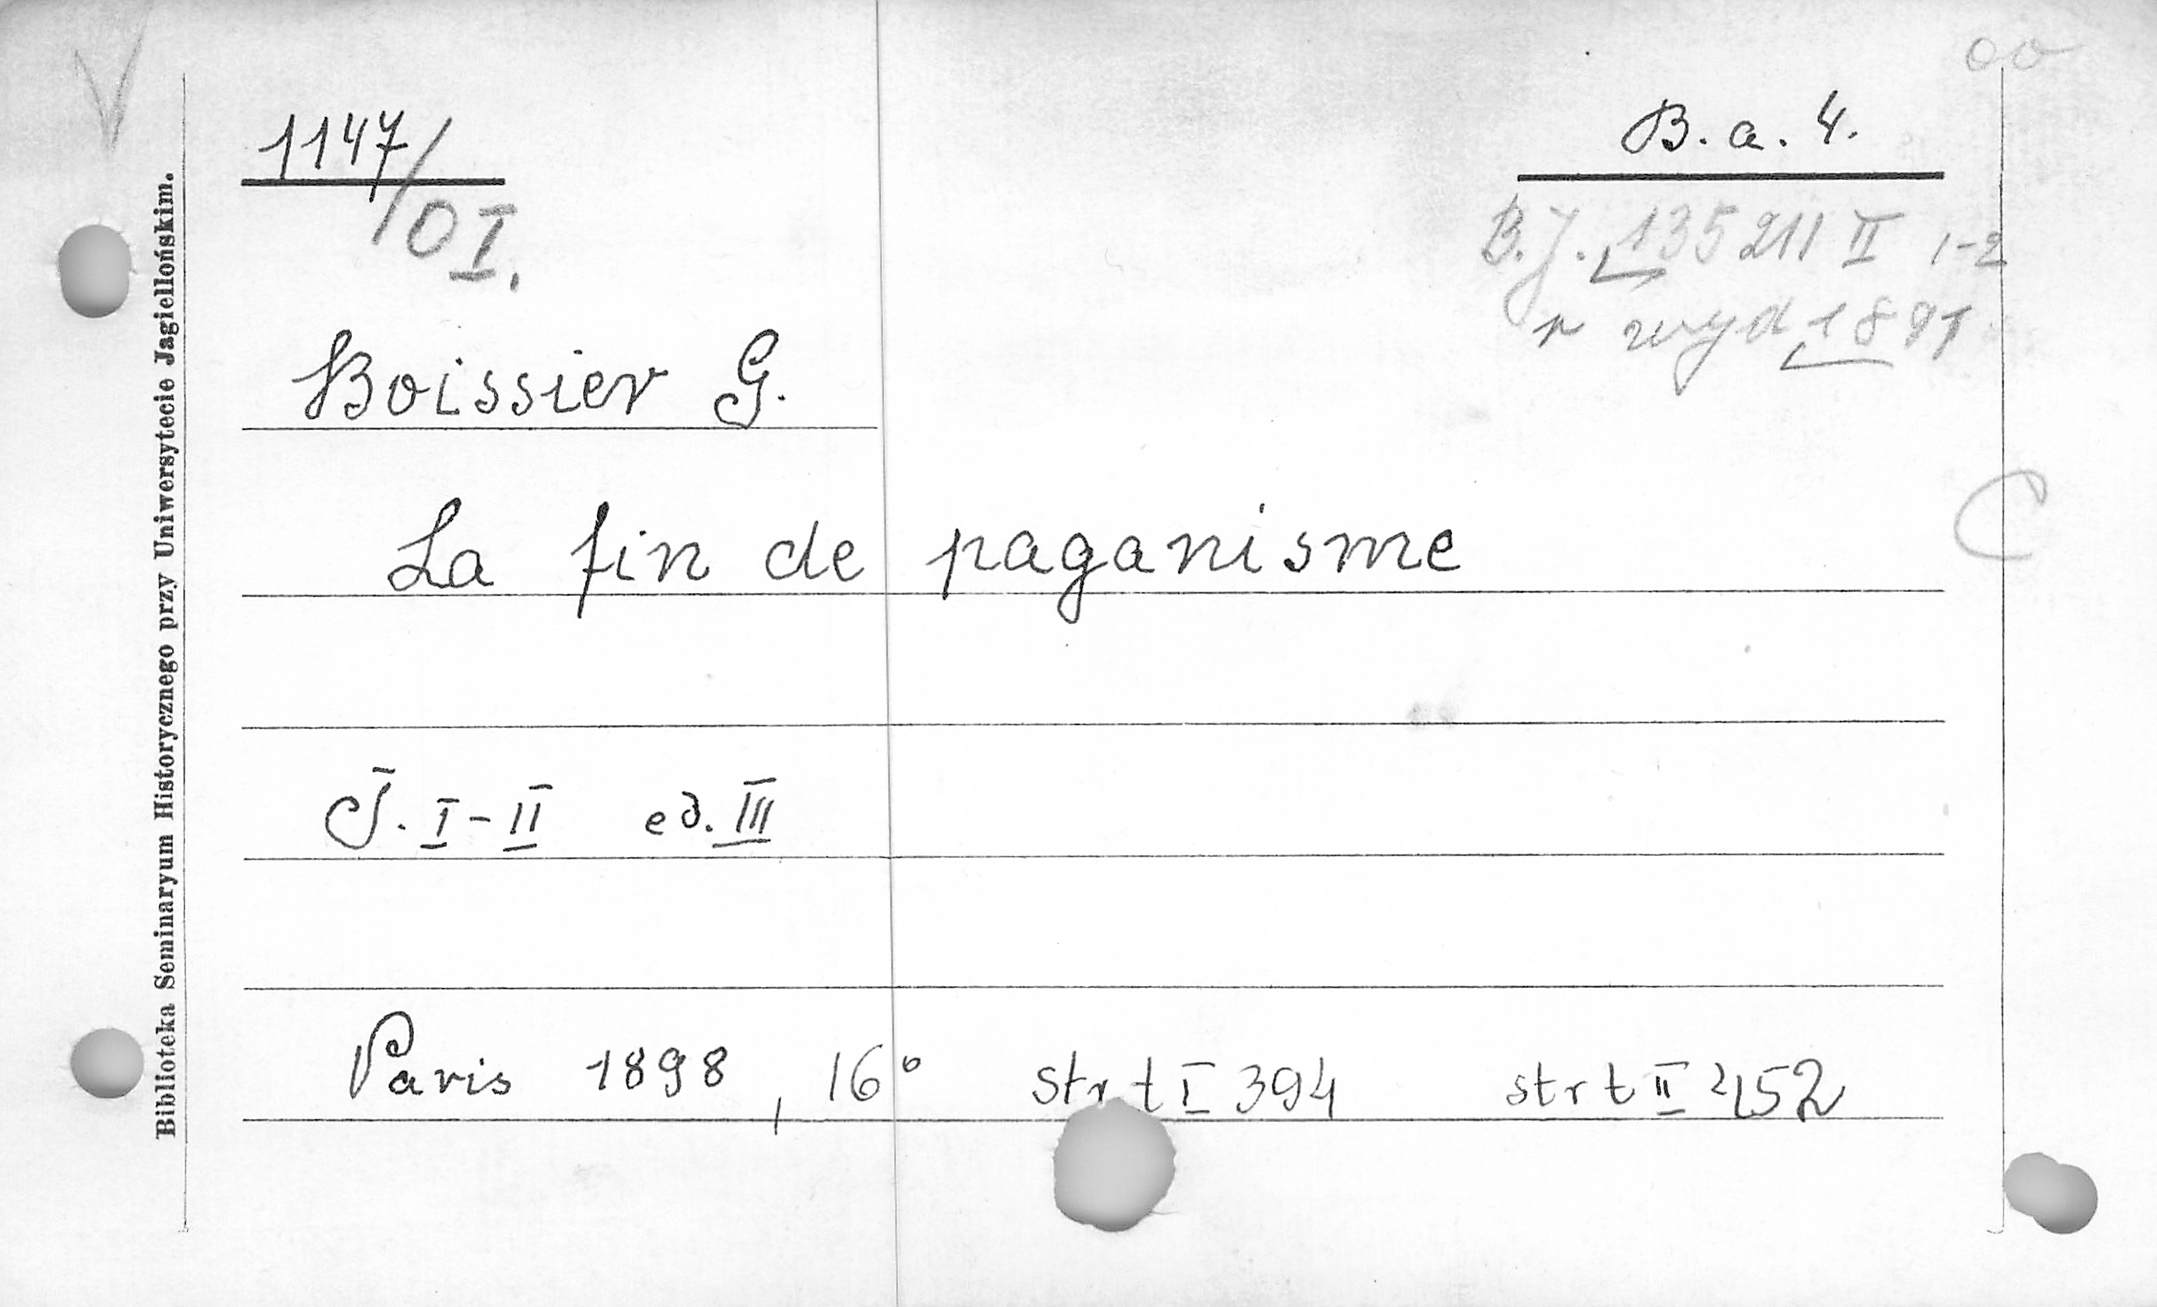 V
oo
1147/OI.
B. a. 4.
B.J. 135211 II 1-2
r wyd 1891
Boissier G.
C
La fin de paganisme
T. I-II ed. III
Paris 1898, 16° str t I 394 str t II 452
Biblioteka Seminaryum Historycznego przy Uniwersytecie Jagiellońskim.